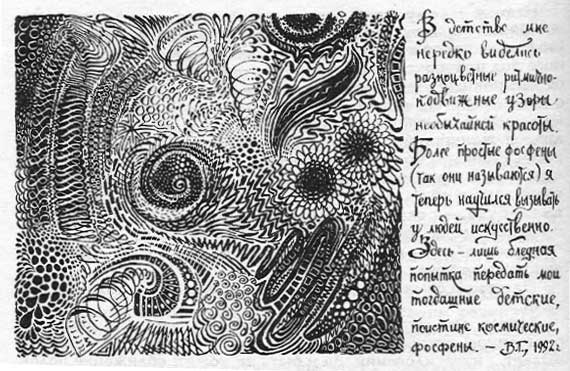 В детстве мне
нередко виделись
разноцветные ритмично-
подвижные узоры
необычайной красоты.
Более простые фосфены
(так они называются) я
теперь научился вызывать
у людей искусственно.
Здесь – лишь бледная
попытка передать мои
тогдашние детские,
поистине космические,
фосфены. – В.Г., 1992г